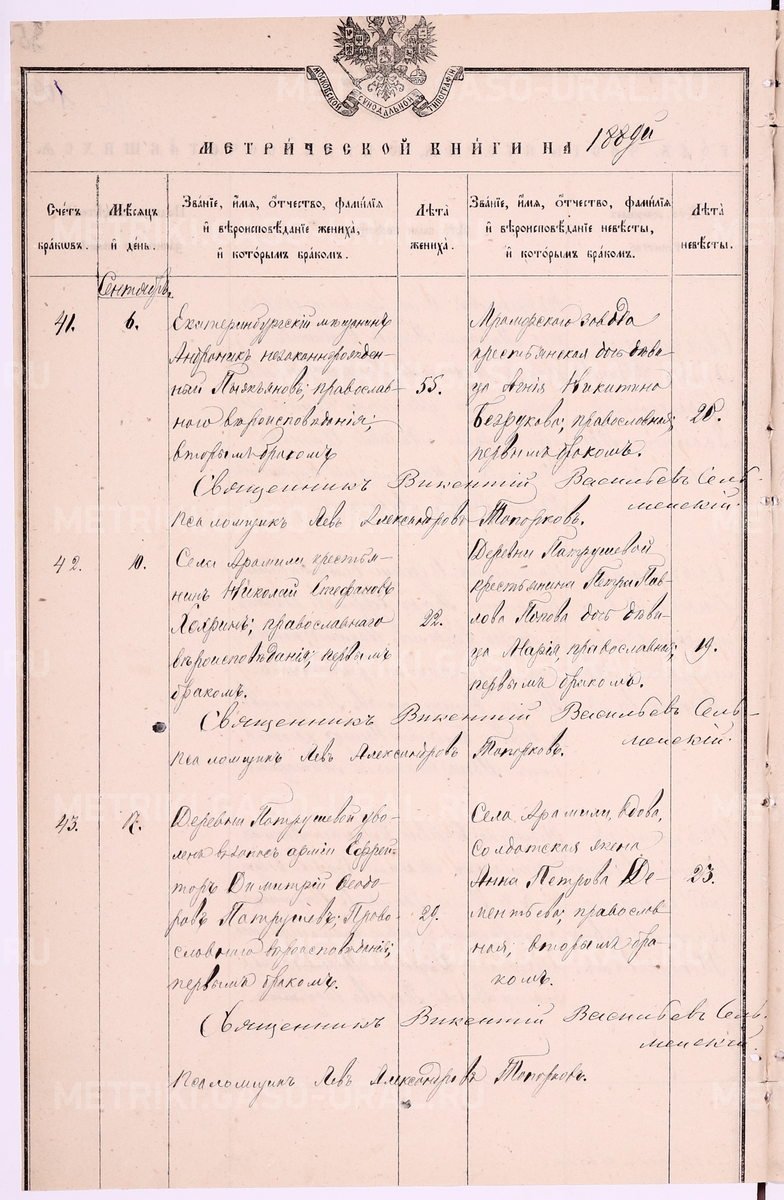 МОСКОВСКОЙ СѴНОДАЛЬНОЙ ТИПОГРАФІИ
МЕТРИ́ЧЕСКОЙ КНИ́ГИ НА 1889й
Сче́тъ бра́кѡвъ.
Мѣ́сяцъ и҆ де́нь.
Зва́нїе, и҆́мя, ѻ҆́тчество, фами́лїя
и҆ вѣроисповѣ́данїе жениха̀,
и҆ кото́рымъ бра́комъ.
Лѣ́та жениха̀.
Зва́нїе, и҆́мя, ѻ҆́тчество, фами́лїя
и҆ вѣроисповѣ́данїе невѣ́сты,
и҆ кото́рымъ бра́комъ.
Лѣ́та невѣ́сты.
Сентябрь.
41.
6.
Екатеринбургскій мѣщанинъ
Андроникъ незаконнорожден-
ный Пьянковъ; православ-
наго вѣроисповѣданія;
вторымъ бракомъ
55.
Мраморскаго завода
крестьянская дочь дѣви-
ца Агнія Никитина
Безрукова; православная;
первымъ бракомъ.
Священникъ Викентій Васильевъ Сель-
менскій.
Псаломщикъ Левъ Александровъ Топорковъ.
42.
10.
Села Арамили крестья-
нинъ Николай Стефановъ
православнаго
вѣроисповѣданія; первымъ
бракомъ.
22.
Деревни Патрушевой
крестьянина Петра Пав-
лова Попова дочь дѣви-
ца Марія, православная;
первымъ бракомъ.
19.
Священникъ Викентій Васильевъ Сель-
менскій.
Псаломщикъ Левъ Александровъ Топорковъ.
43.
17.
Деревни Патрушевой уво-
ленъ въ запасъ арміи Ефрей-
торъ Димитрій Ѳеодо-
ровъ Патрушевъ; Право-
славнаго вѣроисповѣданія;
первымъ бракомъ.
29.
Села Арамили, вдова,
солдатская жена
Анна Петрова Де-
ментьева; православ-
ная; вторымъ бра-
комъ.
23.
Священникъ Викентій Васильевъ Сель-
менскій.
Псаломщикъ Левъ Александровъ Топорковъ.